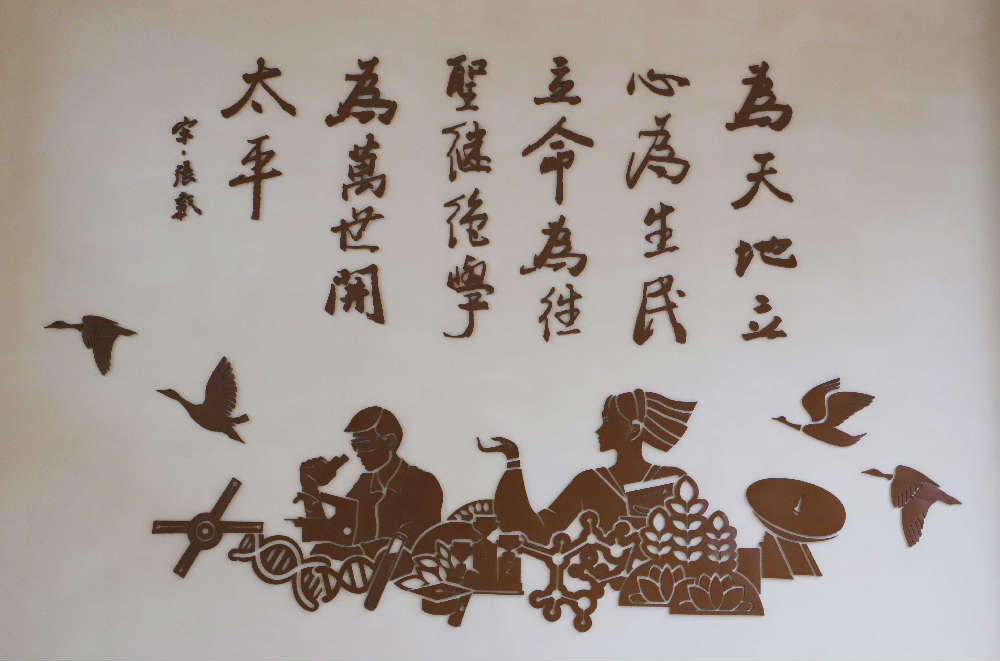 為天地立
心為生民
立命為往
聖继绝學
為萬世開
太平
宋·張載